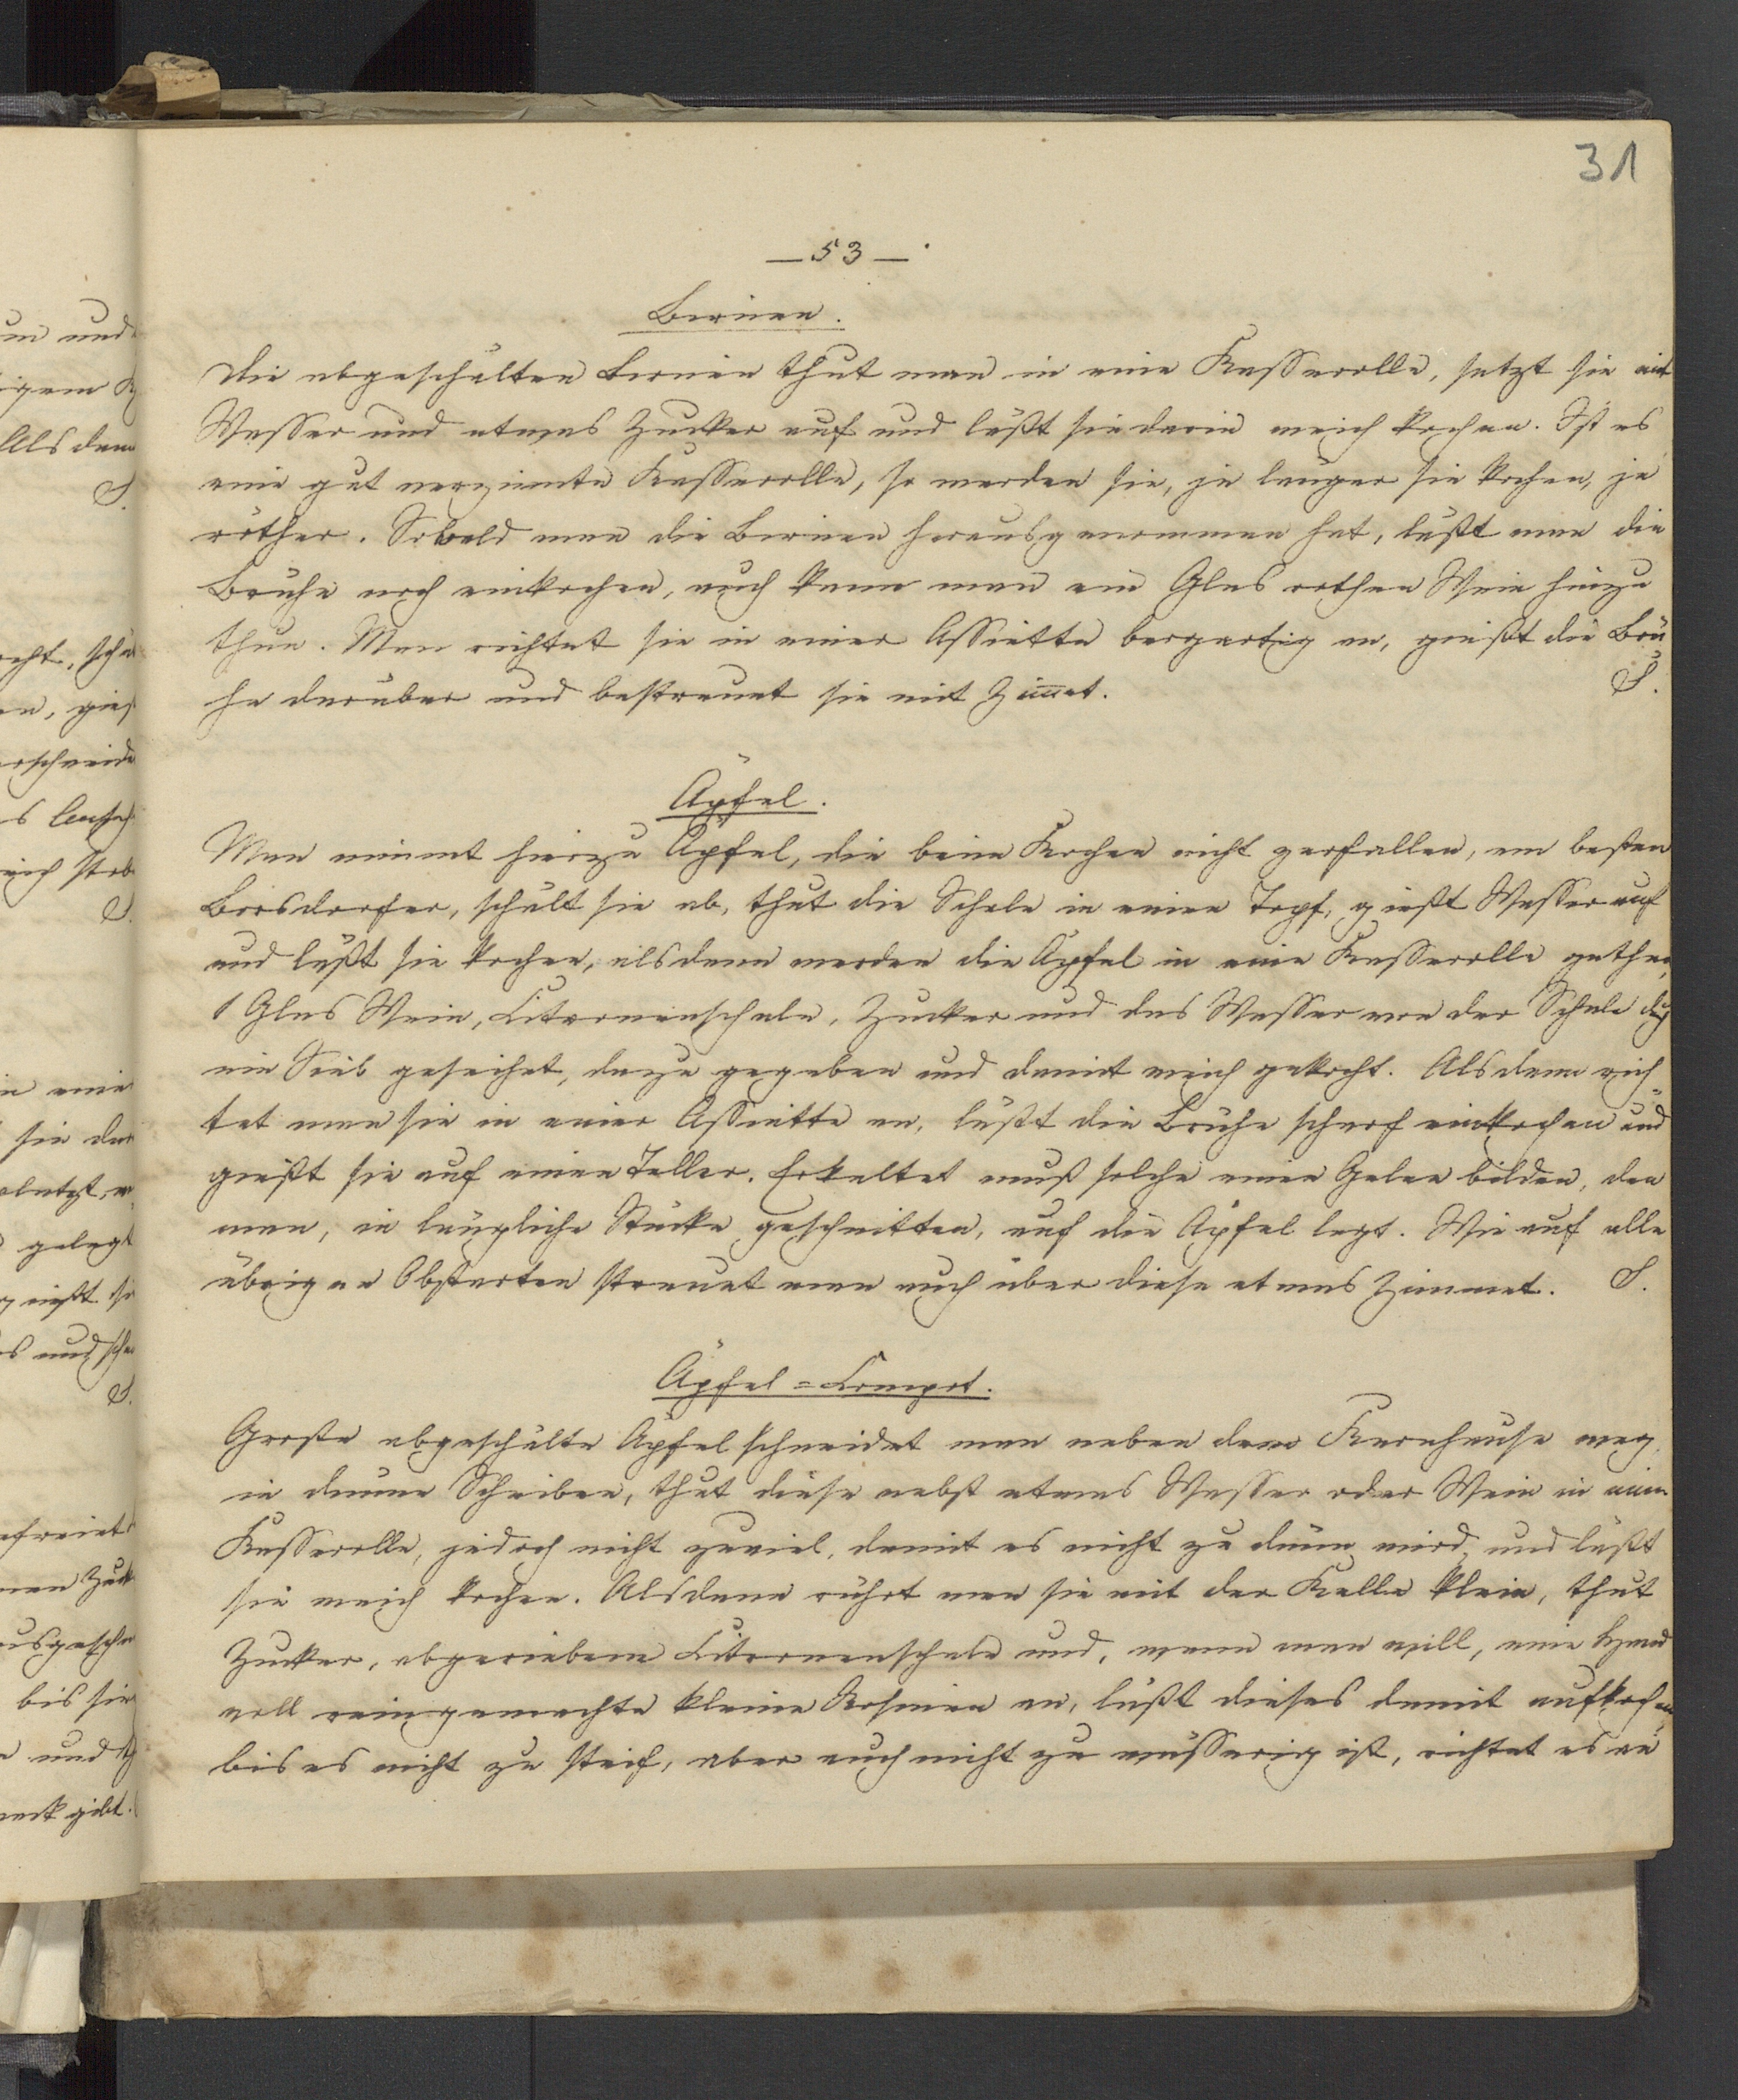 31
— 53 —
Birnen.
Die abgeschälten Birnen thut man in eine Kasserolle, setzt sie mit
Wasser und etwas Zucker auf und läßt sie darin weich kochen. Ist es
eine gut verzinnte Kasserolle, so werden sie, je länger sie kochen, je
röther. Sobald man die Birnen herausgenommen hat, läßt man die
Brühe noch einkochen, auch kann man ein Glas rothen Wein hinzu
thun. Man richtet sie in einer Assiette bergartig an, gießt die Brü
he darüber und bestreuet sie mit Zimmt. S.
Äpfel.
Man nimmt hierzu Äpfel, die beim Kochen nicht zerfallen, am besten
Borsdorfer, schält sie ab, thut die Schale in einen Topf, gießt Wasser auf
und läßt sie kochen, alsdann werden die Äpfel in eine Kasserolle gethan,
1 Glas Wein, Citronenschale, Zucker und das Wasser von der Schale durch
ein Sieb geseihet, dazu gegeben und damit weich gekocht. Alsdann rich=
tet man sie in einer Assiette an, läßt die Brühe scharf einkochen und
gießt sie auf einen Teller. Erkaltet muß solche einen Gelee bilden, den
man, in längliche Stücke geschnitten, auf die Äpfel legt. Wie auf alle
übrigen Obstarten streuet man auch über diese etwas Zimmet. S.
Äpfel=Compot.
Große abgeschälte Äpfel schneidet man neben dem Kernhause weg,
in dünne Scheiben, thut diese nebst etwas Wasser oder Wein in eine
Kasserolle, jedoch nicht zuviel, damit es nicht zu dünn wird, und läßt
sie weich kochen. Alsdann rührt man sie mit der Kelle klein, thut
Zucker, abgeriebene Citronenschale und, wenn man will, eine Hand
voll reingemachte kleine Rosinen an, läßt dieses damit aufkochen
bis es nicht zu steif, aber auch nicht zu wässerig ist, richtet es an